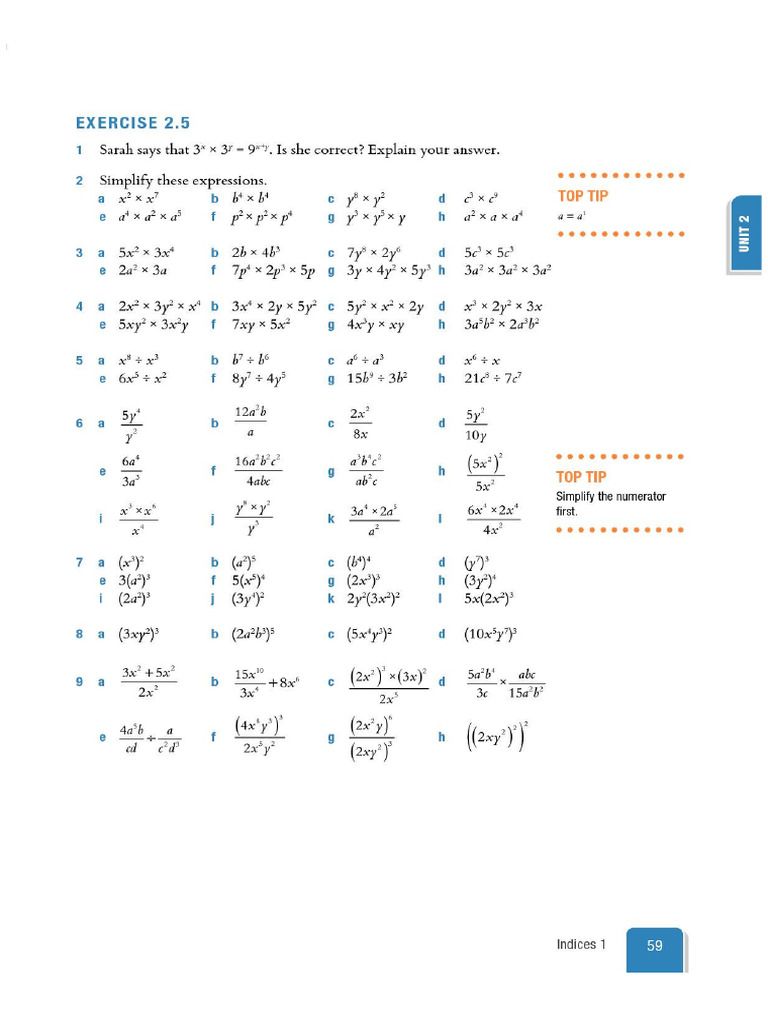 EXERCISE 2.5
1 Sarah says that 3ˣ × 3ʸ = 9ˣ⁺ʸ. Is she correct? Explain your answer.
2 Simplify these expressions.
a x² × x⁷ b b⁴ × b⁴ c y⁸ × y² d c³ × c⁹
e a⁴ × a² × a⁵ f p² × p² × p⁴ g y³ × y⁵ × y h a² × a × a⁴
TOP TIP
a = a¹
UNIT 2
3 a 5x² × 3x⁴ b 2b × 4b³ c 7y⁸ × 2y⁶ d 5c³ × 5c³
e 2a² × 3a f 7p⁴ × 2p³ × 5p g 3y × 4y² × 5y³ h 3a² × 3a² × 3a²
4 a 2x² × 3y² × x⁴ b 3x⁴ × 2y × 5y² c 5y² × x² × 2y d x³ × 2y² × 3x
e 5xy² × 3x²y f 7xy × 5x² g 4x³y × xy h 3a⁵b² × 2a³b²
5 a x⁸ ÷ x³ b b⁷ ÷ b⁶ c a⁶ ÷ a³ d x⁶ ÷ x
e 6x⁵ ÷ x² f 8y⁷ ÷ 4y⁵ g 15b⁹ ÷ 3b² h 21c⁸ ÷ 7c⁷
6 a 5y⁴/y² b 12a²b/a c 2x²/8x d 5y²/10y
e 6a⁴/3a³ f 16a²b²c²/4abc g a³b⁴c²/ab²c h (5x²)²/5x²
TOP TIP
Simplify the numerator
first.
i x³ × x⁶/x⁴ j y⁸ × y²/y³ k 3a⁴ × 2a⁵/a² l 6x⁴ × 2x⁴/4x²
7 a (x³)² b (a²)⁵ c (b⁴)⁴ d (y⁷)³
e 3(a²)³ f 5(x⁵)⁴ g (2x³)³ h (3y²)⁴
i (2a²)³ j (3y⁴)² k 2y²(3x²)² l 5x(2x²)³
8 a (3xy²)³ b (2a²b³)⁵ c (5x⁴y³)² d (10x⁵y⁷)³
9 a 3x² + 5x²/2x² b 15x¹⁰/3x⁴ + 8x⁶ c (2x²)³ × (3x)²/2x⁵ d 5a²b⁴/3c × abc/15a²b²
e 4a⁵b/cd ÷ a/c²d³ f (4x⁴y³)³/2x⁵y² g (2x²y)⁶/(2xy²)³ h ((2xy²)²)²
Indices 1 59